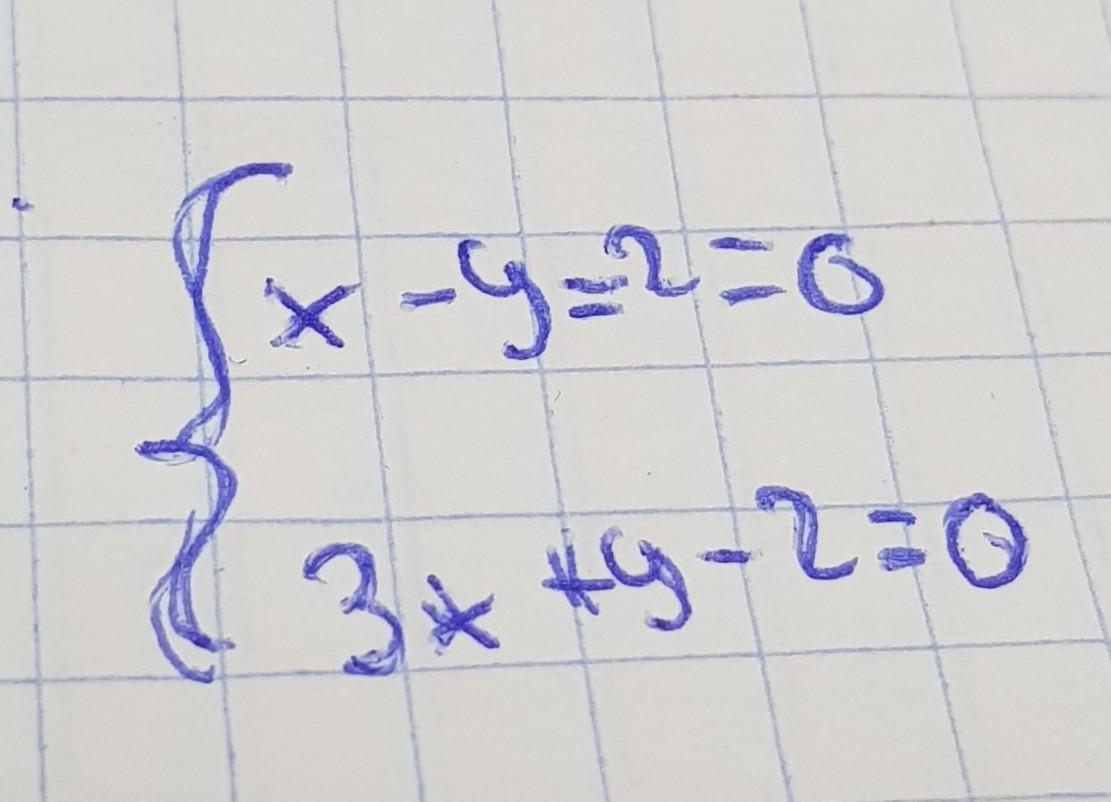 x - y = 2 = 0
3x + y - 2 = 0